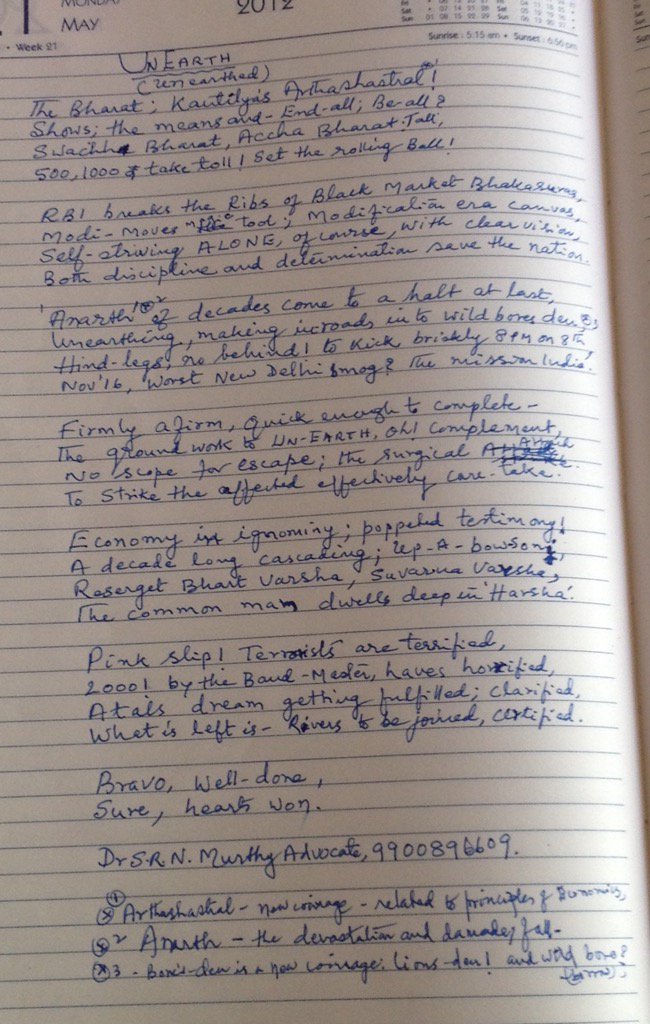 MONDAY
2012
MAY
• Week 21
Sunrise : 5:15 am • Sunset : 6:56 pm
UNEARTH
(unearthed)
The Bharat; Kautilya's Arthashastral!
Shows; the means and - End-all; Be-all?
Swachh Bharat, Accha Bharat Tall,
500, 1000 ₹ take toll! Set the rolling Ball!
RBI breaks the Ribs of Black Market Bhakasuras,
Modi-Moves tool; Modification era canvas,
Self-striving ALONE, of course, with clear vision,
Both discipline and determination save the nation.
'Anarth' 2 of decades come to a halt at last,
Unearthing, making inroads in to wild bores den, 3
Hind-legs, no behind! to Kick briskly 8 PM on 8th,
Nov'16, Worst New Delhi smog? The mission India.
Firmly afirm, quick enough to complete -
The ground work to UN-EARTH, Oh! Complement,
No scope for escape; the surgical
To Strike the affected effectively care-take.
Economy in ignominy; poppeted testimony!
A decade long cascading; up-A-bowsong;
Reserget Bhart Varsha, Suvarna Varsha,
The common man dwells deep in 'Harsha'.
Pink slip! Terrorists are terrified,
2000! by the Band-Master, haves horrified,
Atals dream getting fulfilled; clarified,
What is left is - Rivers to be joined, certified.
Bravo, Well-done,
Sure, hearts won.
Dr S.R.N. Murthy Advocate, 9900896609.
Arthashastral - new coinage - related to principles of Economics,
2 Anarth - the devastation and damages
3 - Bore's-den is a new coinage. Lions-den! and wild bore?